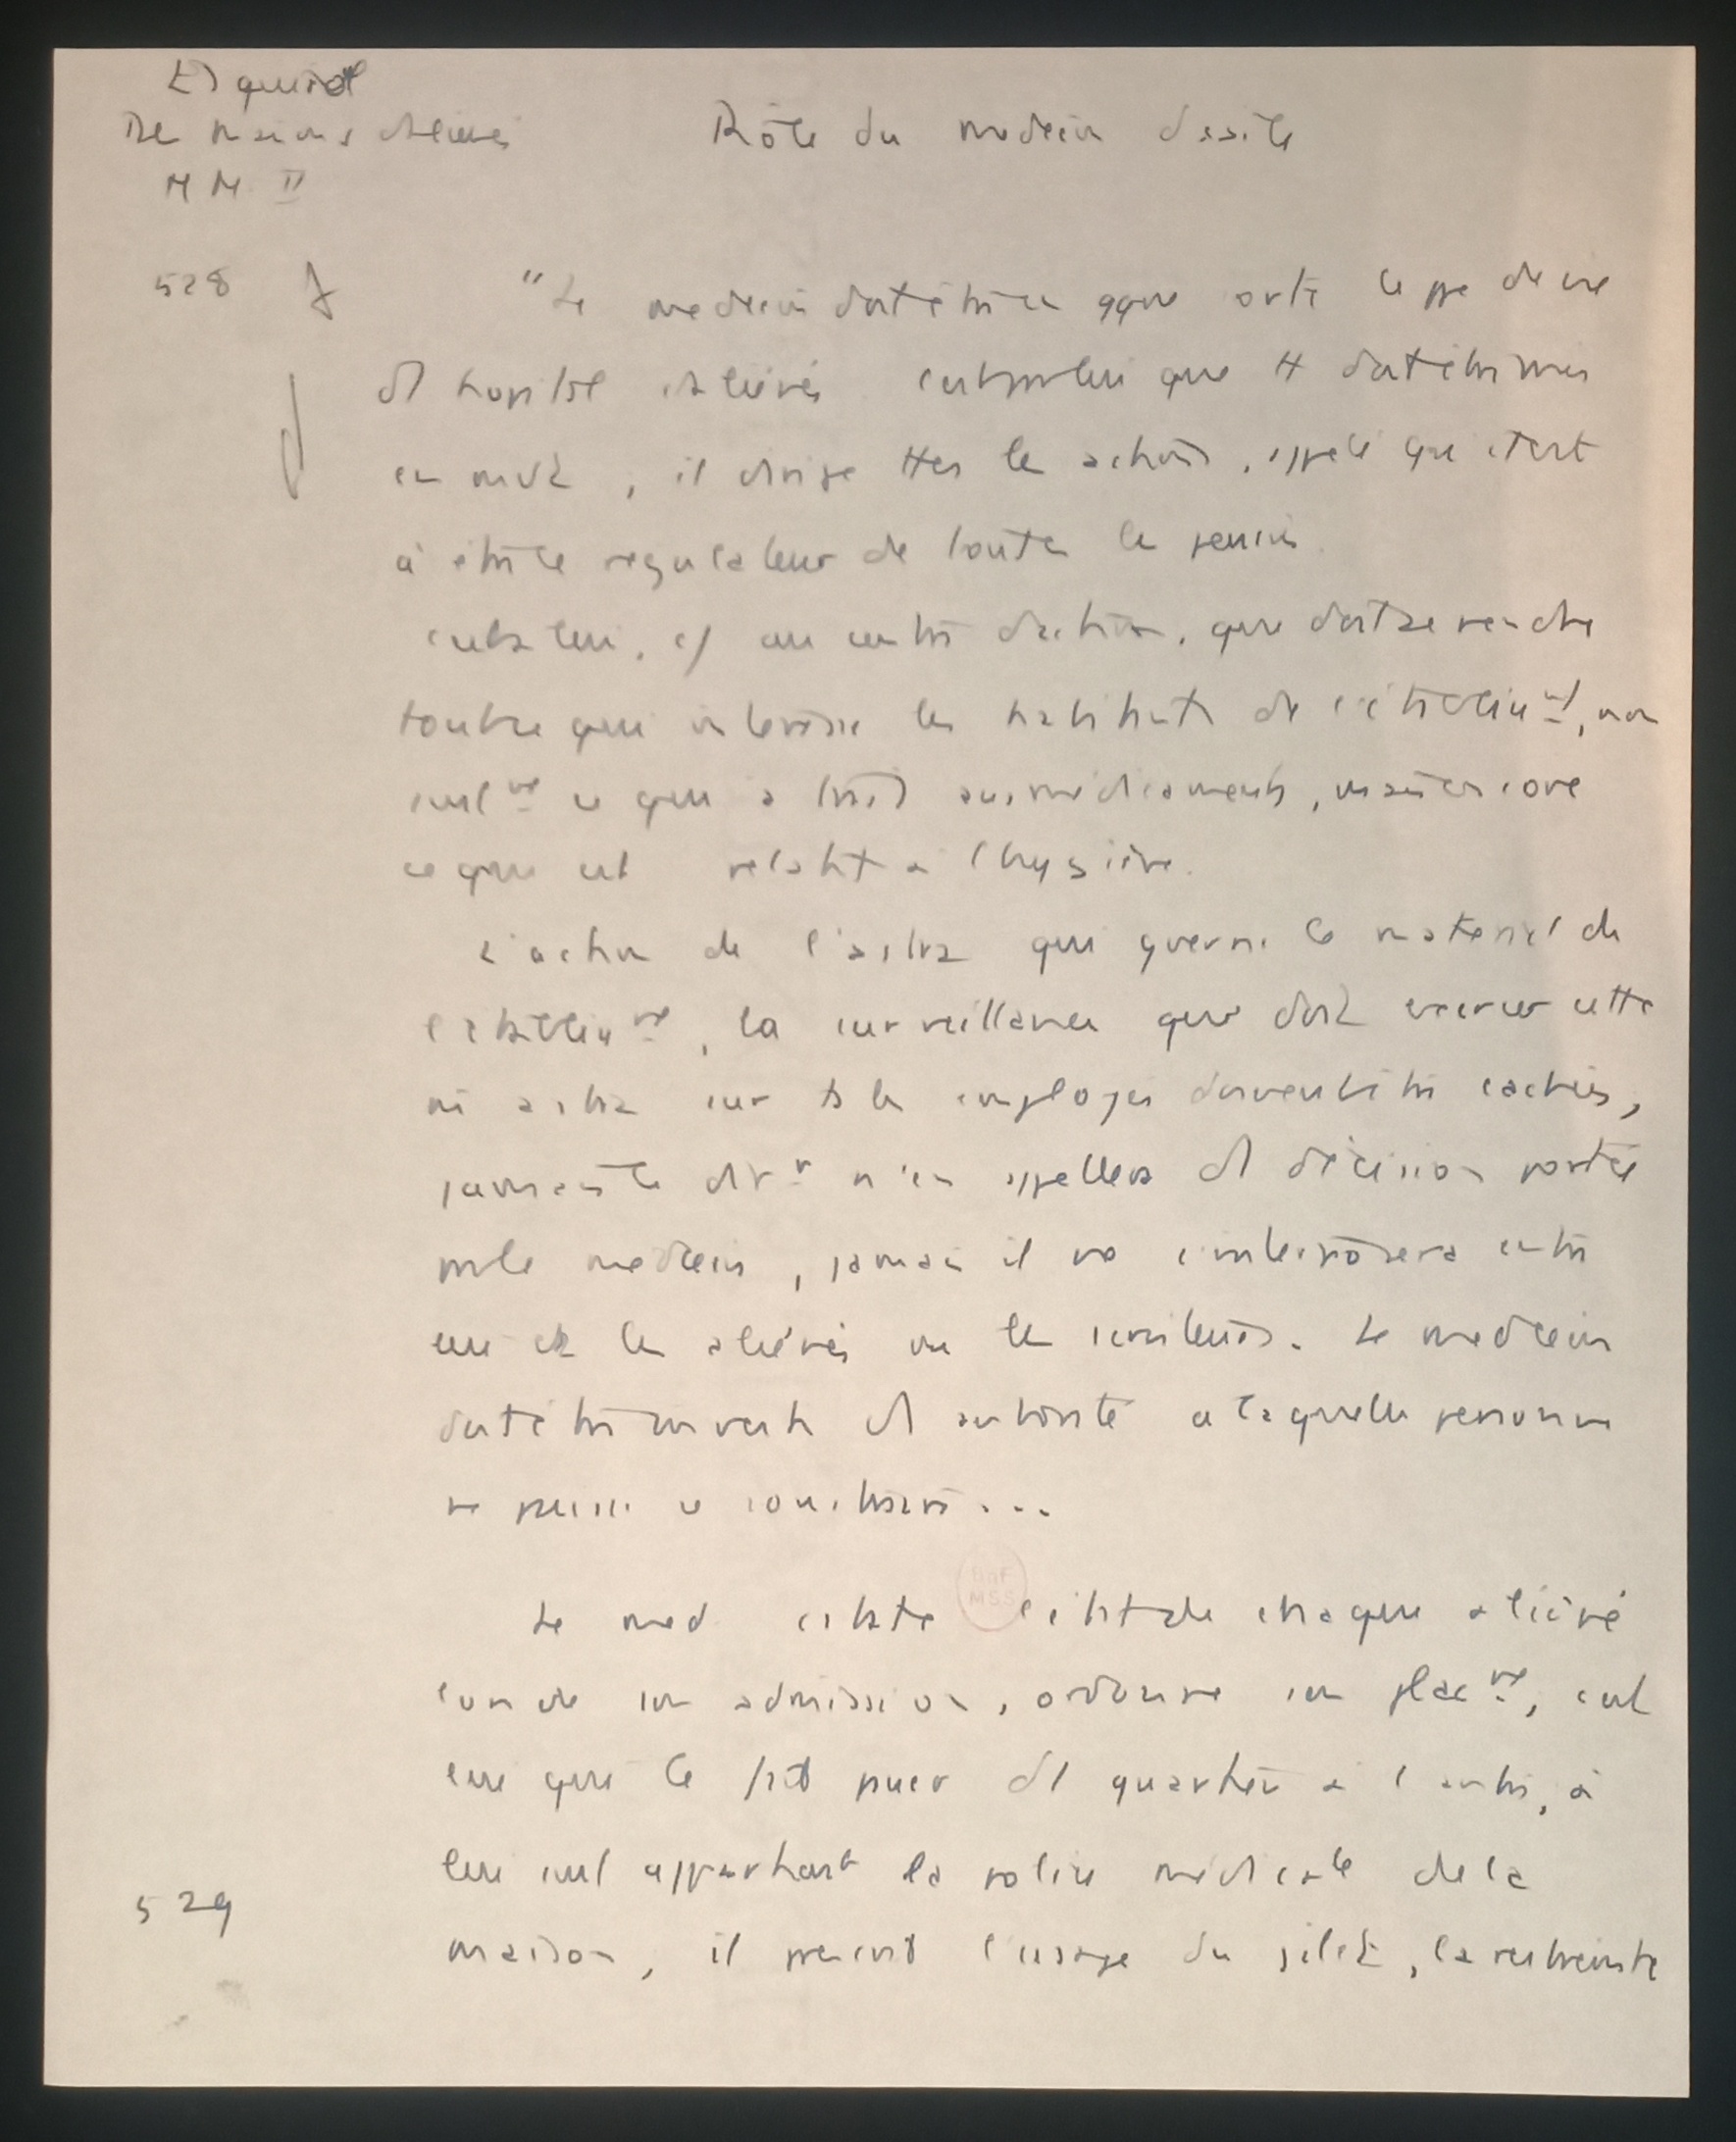 Esquirol
Des maisons d'aliénés
MM II
Rôle du médecin d'asile
528
"Le médecin doit être qque sorte le ppe de vie
d'1 hôpital d'aliénés. C'est par lui que tt doit être mis
en mvt, il dirige ttes les actions, appelé qu'il est
à être le régulateur de toutes les pensées.
C'est à lui, c/ au centre d'action, que doit se rendre
tout ce qui intéresse les habitants de l'établiss^nt, non
seul^nt ce qui a trait aux médicaments, mais encore
ce qui est relatif à l'hygiène.
L'action de l'adm qui gouverne le matériel de
l'établiss^nt, la surveillance que doit exercer cette
m adm sur ts les employés doivent être cachées,
jamais le dir^r n'en appellera d'1 décision portée
par le médecin, jamais il ne s'interposera entre
lui et les aliénés ou les serviteurs. Le médecin
doit être investi d'1 autorité à laquelle personne
ne puisse se soustraire...
Le med constate l'état de chaque aliéné
lors de son admission, ordonne son plac^nt, c'est
lui qui le fait passer d'1 quartier à l'autre, à
lui seul appartient la police médicale de la
529
maison, il prescrit l'usage du gilet, la restreinte
BnF
MSS